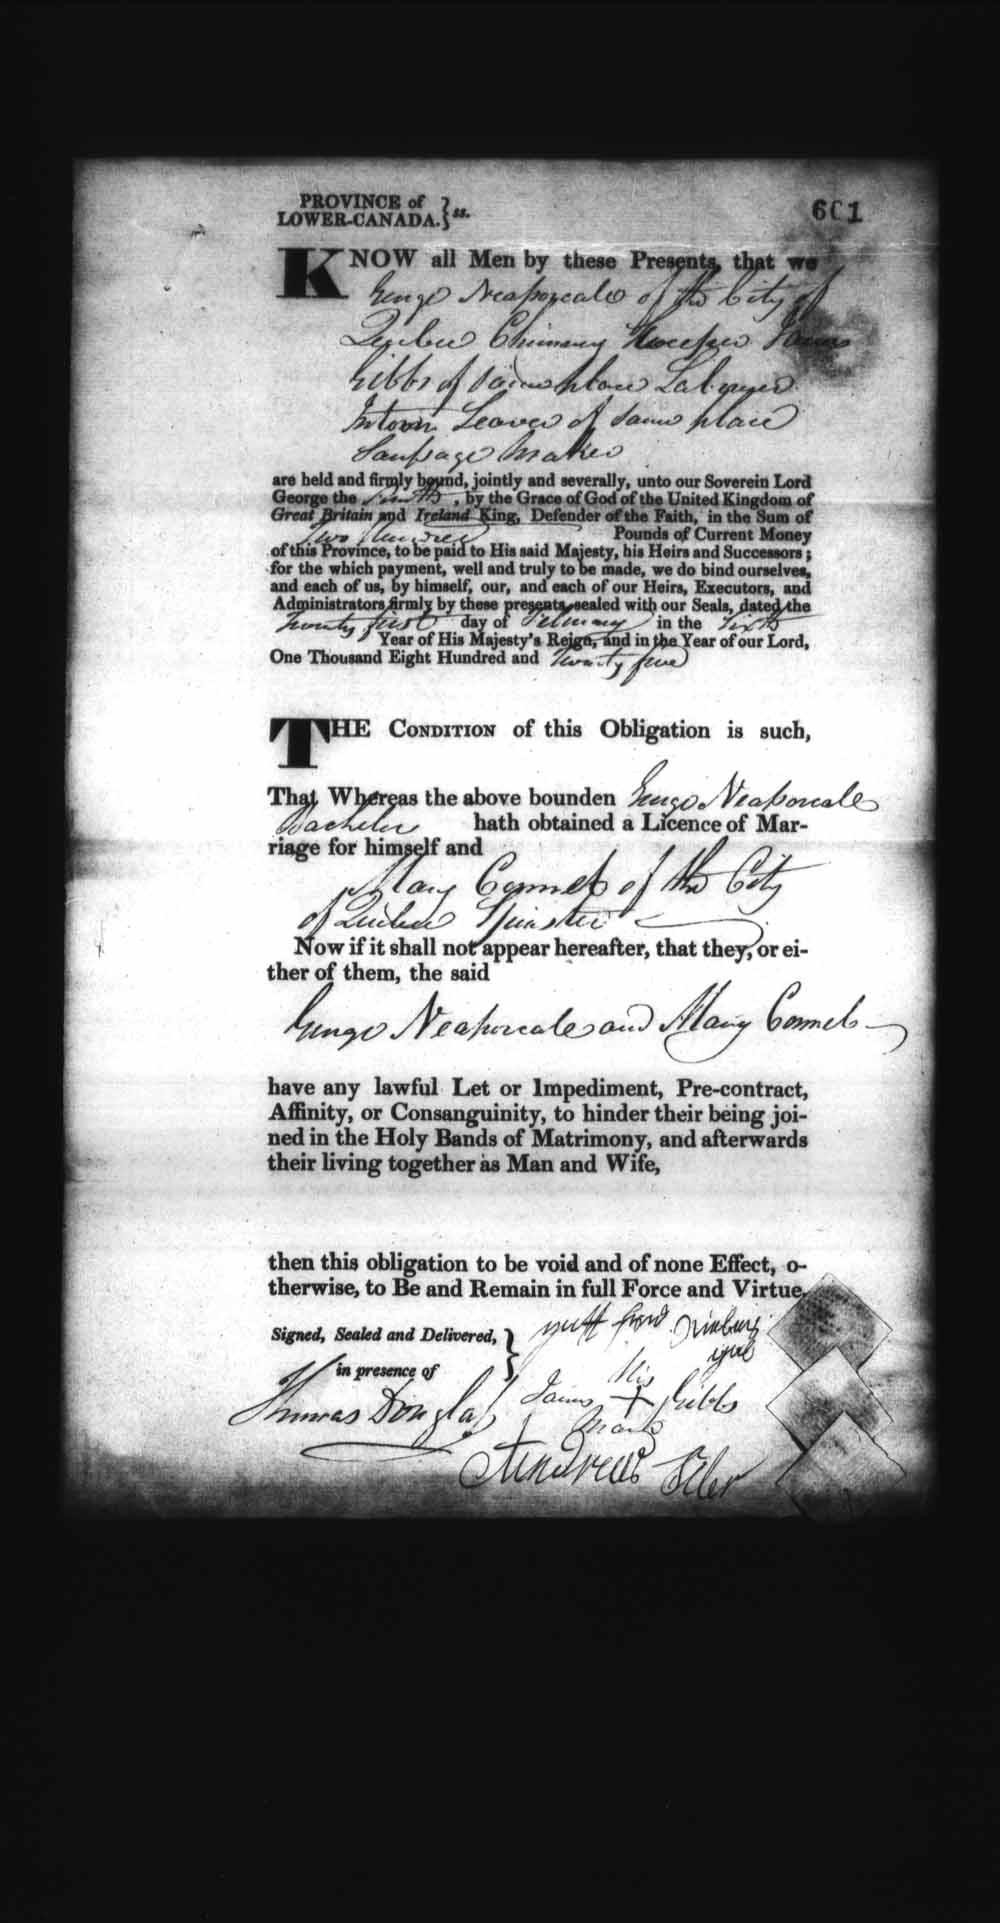 PROVINCE of
LOWER-CANADA. } ss.
601
KNOW all Men by these Presents, that we
of the City of
Quebec Chimney Sweeper James
Gibbs of same place Labourer
of same place
Sausage Maker
are held and firmly bound, jointly and severally, unto our Soverein Lord
George the Fourth, by the Grace of God of the United Kingdom of
Great Britain and Ireland King, Defender of the Faith, in the Sum of
Two Hundred Pounds of Current Money
of this Province, to be paid to His said Majesty, his Heirs and Successors;
for the which payment, well and truly to be made, we do bind ourselves,
and each of us, by himself, our, and each of our Heirs, Executors, and
Administrators firmly by these presents, sealed with our Seals, dated the
Twenty first day of February in the Sixth
Year of His Majesty's Reign, and in the Year of our Lord,
One Thousand Eight Hundred and Twenty five
THE CONDITION of this Obligation is such,
That Whereas the above bounden
Bachelor hath obtained a Licence of Mar-
riage for himself and
Mary of the City
of Quebec Spinster
Now if it shall not appear hereafter, that they, or ei-
ther of them, the said
and Mary
have any lawful Let or Impediment, Pre-contract,
Affinity, or Consanguinity, to hinder their being joi-
ned in the Holy Bands of Matrimony, and afterwards
their living together as Man and Wife,
then this obligation to be void and of none Effect, o-
therwise, to Be and Remain in full Force and Virtue.
Signed, Sealed and Delivered, }
in presence of
His
Thomas Douglas James + Gibbs
Mark
Andrew